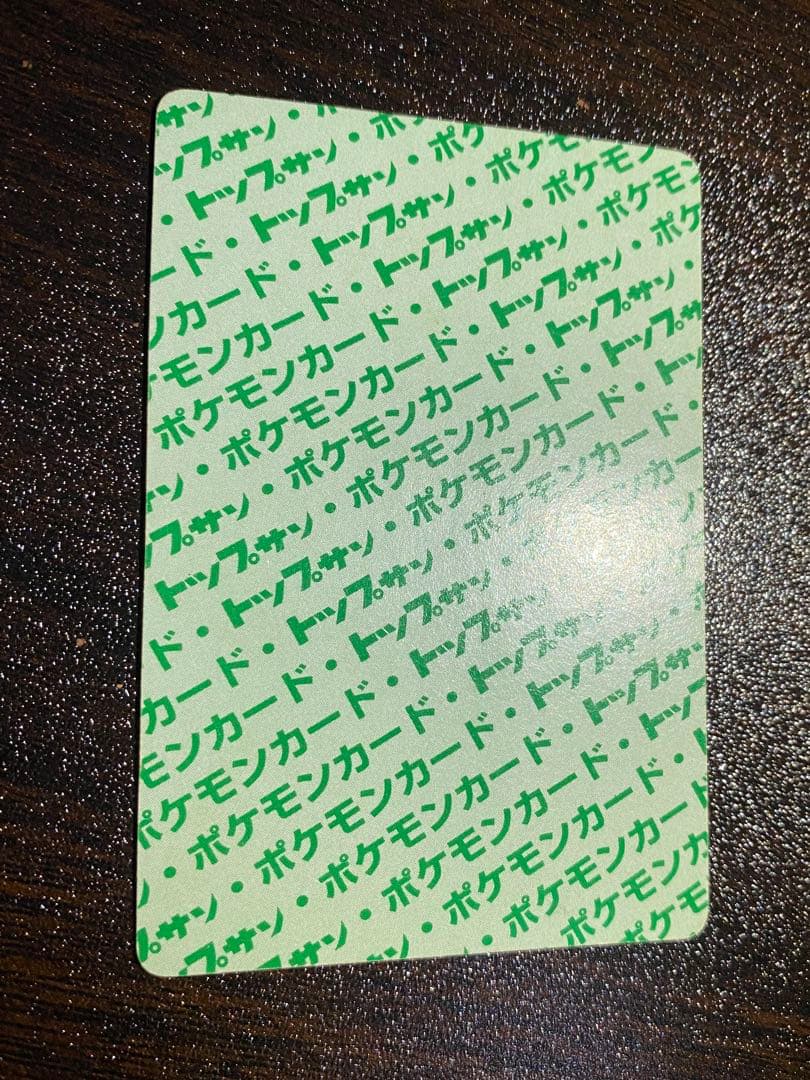 サン
ップサン・ポ
・トップサン・ポケ
ード・トップサン・ポケ
ンカード・トップサン・ポケモ
ケモンカード・トップサン・ポケモン
ポケモンカード・トップサン・ポケモン
ン・ポケモンカード・トップサン・ポケ
プサン・ポケモンカード・トップサン・
トップサン・ポケモンカード・トップサ
ド・トップサン・ポケモンカード・トッ
カード・トップサン・ポケモンカード・
モンカード・トップサン・ポケモンカード
ポケモンカード・トップサン・
・ポケモンカード・トップサン
・ポケモンカード・トップサン・
プサン・ポケモンカード・トップサン
トップサン・ポケモンカード・トップ
サン・ポケモンカード・ト
・ポケモンカード
ポケモンカ
ケモ